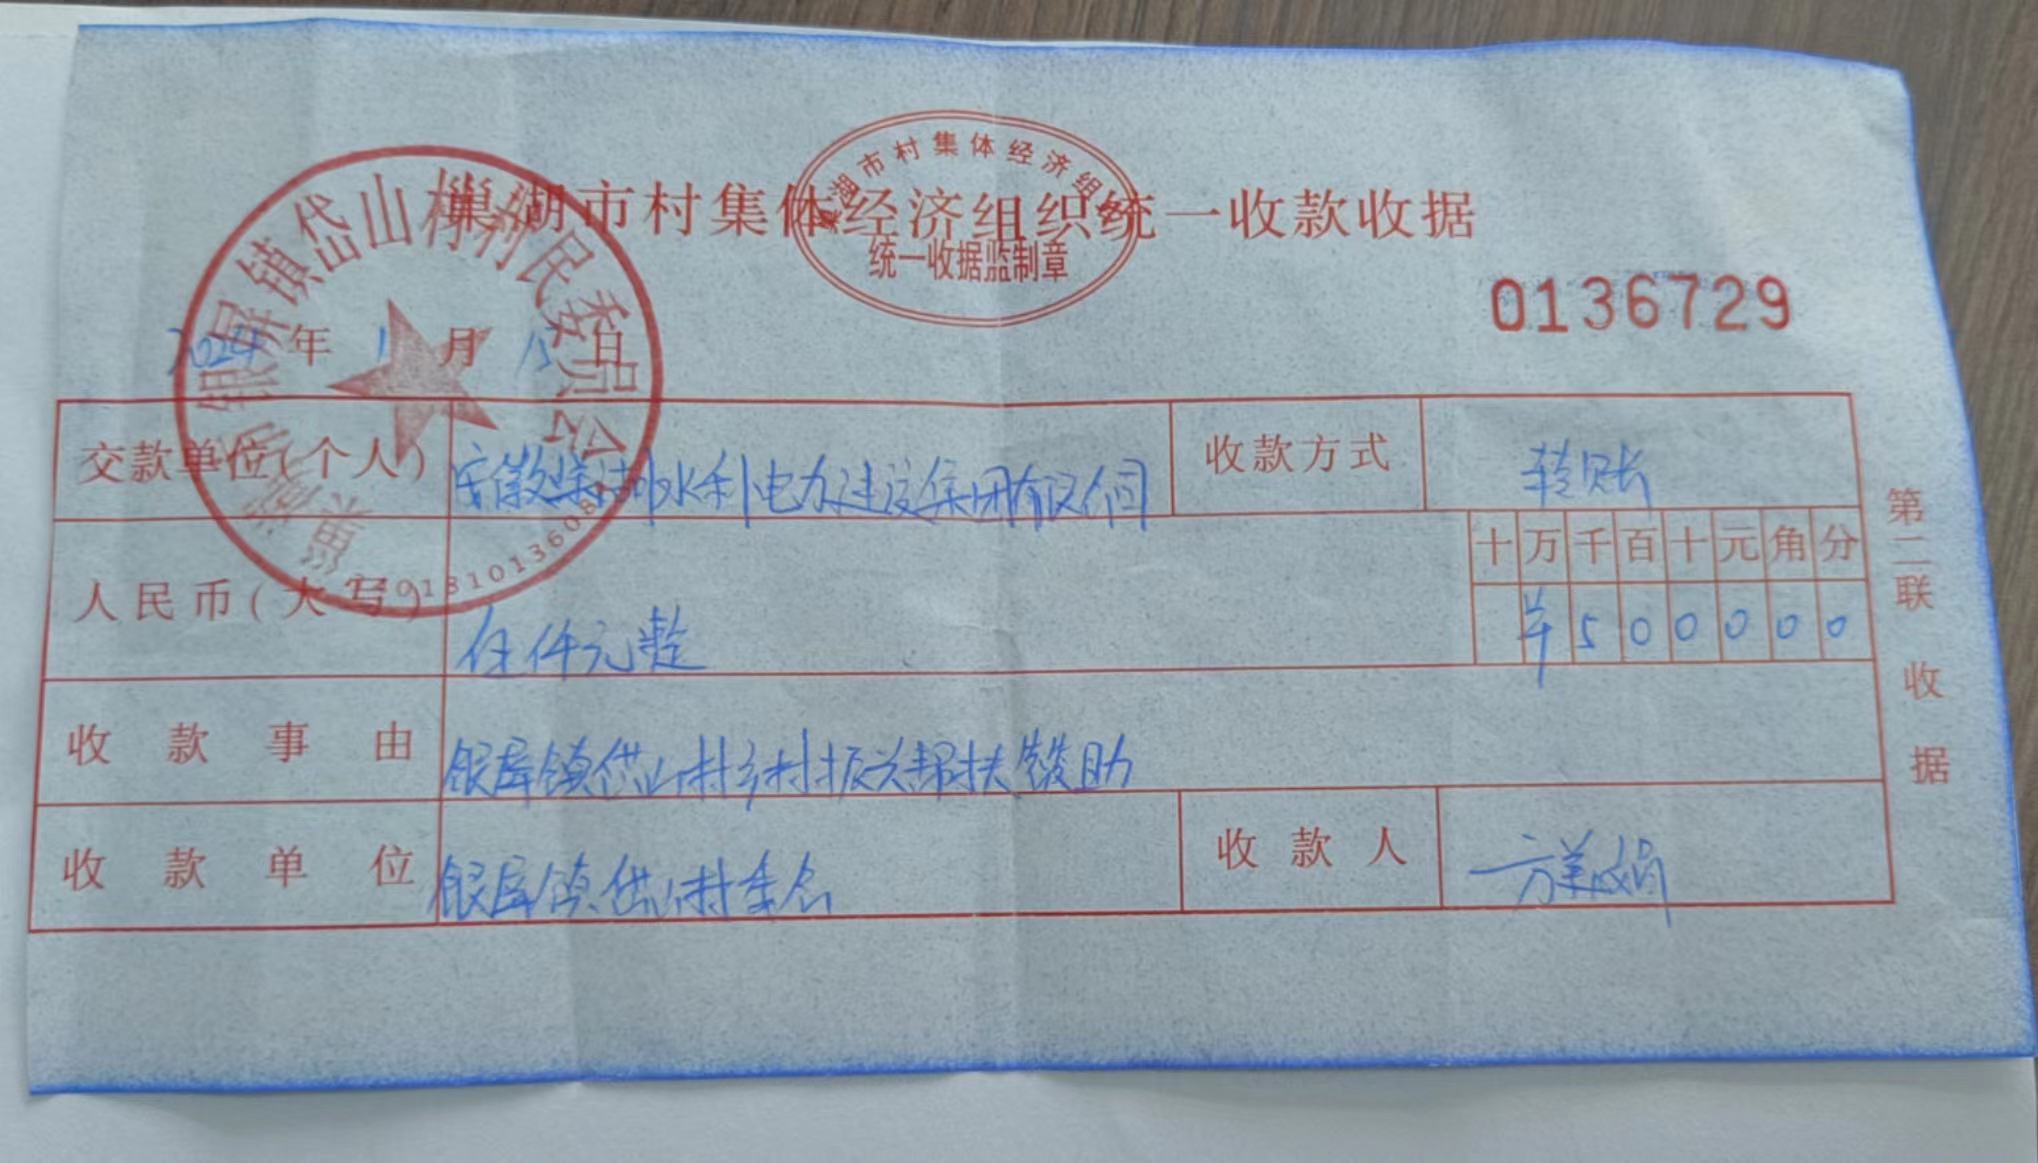 巢湖市村集体经济组织统一收款收据
巢湖市村集体经济组织
统一收据监制章
0136729
2024年1月15日
银屏镇岱山村村民委员会
交款单位(个人) 安徽巢湖水利电力建设集团有限公司 收款方式 转账
人民币(大写) 伍仟元整
十万千百十元角分
¥500000
收款事由 银屏镇岱山村乡村振兴帮扶赞助
收款单位 银屏镇岱山村委会 收款人
第二联 收据